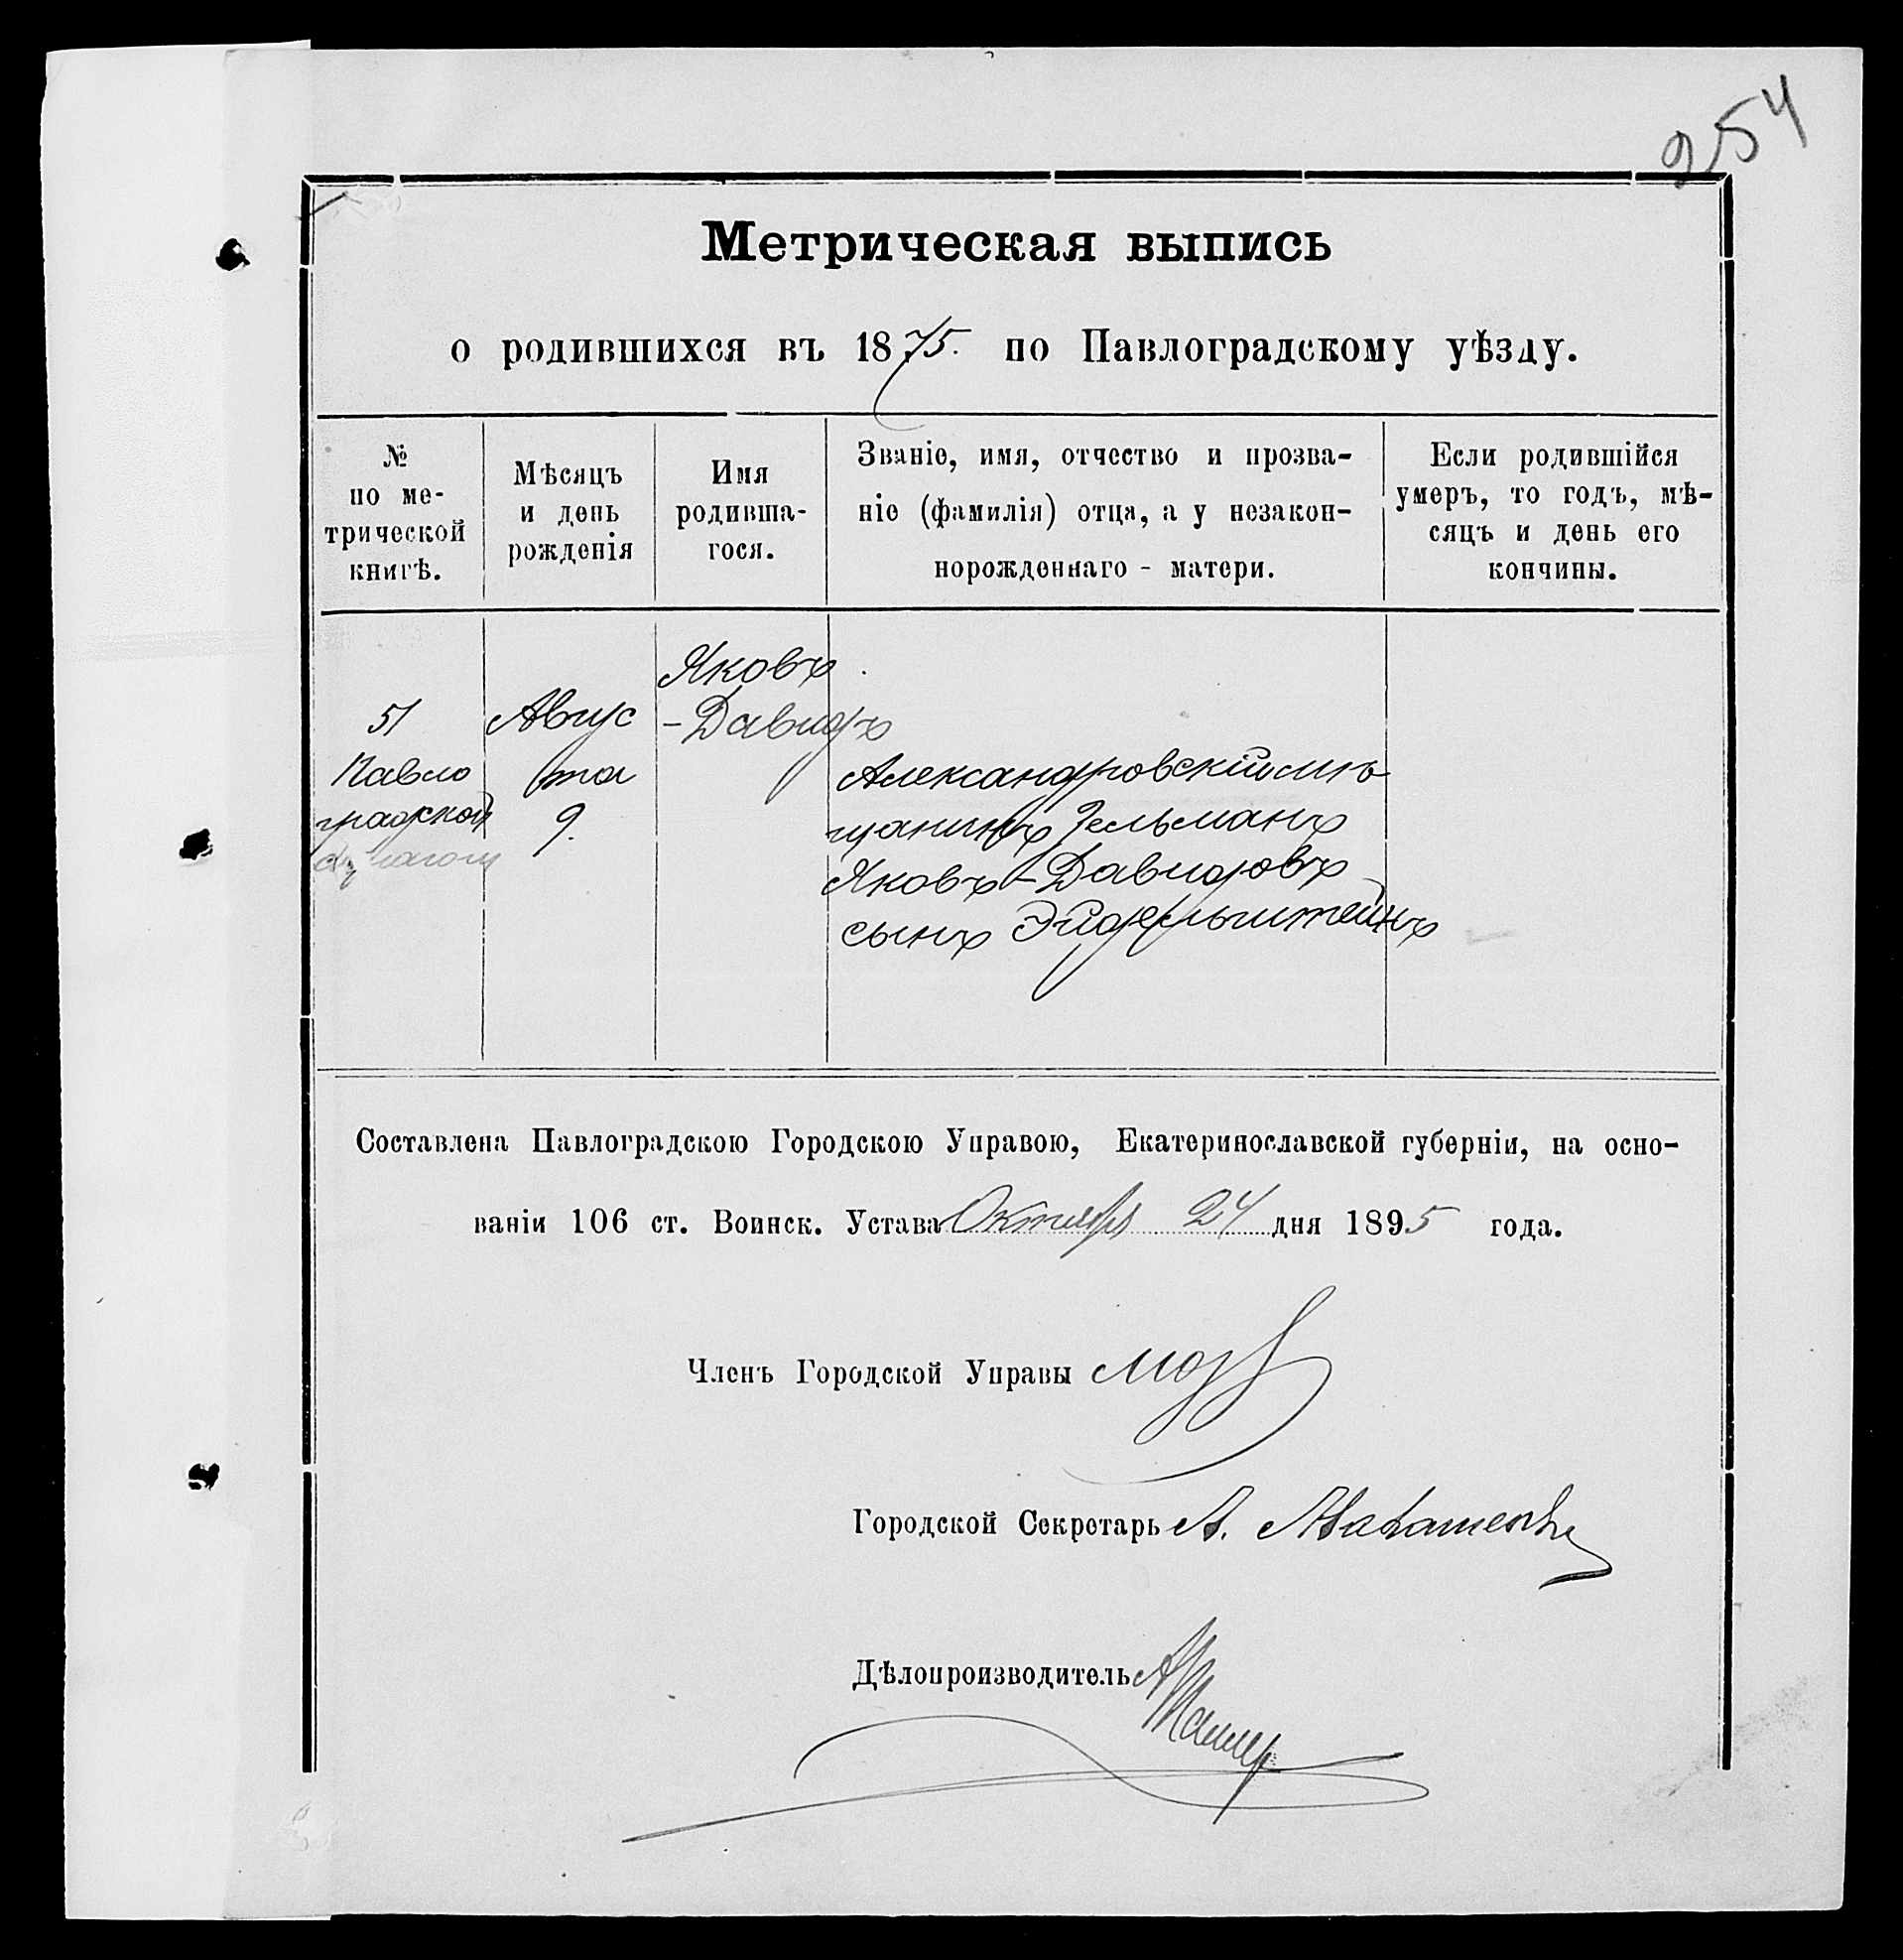 254
Метрическая выпись
о родившихся въ 1875. по Павлоградскому уѣзду.
№
по ме-
трической
книгѣ.
Мѣсяцъ
и день
рожденія
Имя
родивша-
гося.
Званіе, имя, отчество и прозва-
ніе (фамилія) отца, а у незакон-
норожденнаго - матери.
Если родившійся
умеръ, то годъ, мѣ-
сяцъ и день его
кончины.
51
Павло
градской
Авгус
та
9.
Яковъ
-Давидъ
Александровскій мѣ
щанинъ Зельманъ
Яковъ-Давидовъ
сынъ Эйдельштейнъ
Составлена Павлоградскою Городскою Управою, Екатеринославской губерніи, на осно-
ваніи 106 ст. Воинск. Устава Октября 24 дня 1895 года.
Членъ Городской Управы
Городской Секретарь А.
Дѣлопроизводитель